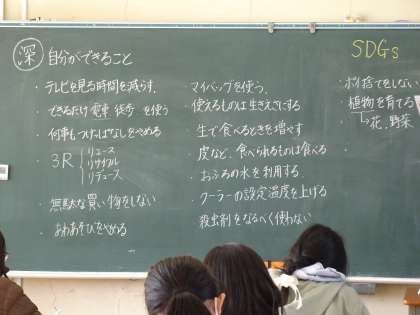 深 自分ができること
・テレビを見る時間を減らす。
・できるだけ電車 徒歩 を使う
・何事もつけっぱなしをやめる
・3R リユース
リサイクル
リデュース
・無駄な買い物をしない
・あわあそびをやめる
マイバッグを使う。
・使えるものは生きかえにする
・生で食べるときを増やす
・皮など、食べられるものは食べる
・おふろの水を利用する
・クーラーの設定温度を上げる
・殺虫剤をなるべく使わない
SDGs
・ポイ捨てをしない
・植物を育てる
→花、野菜
・